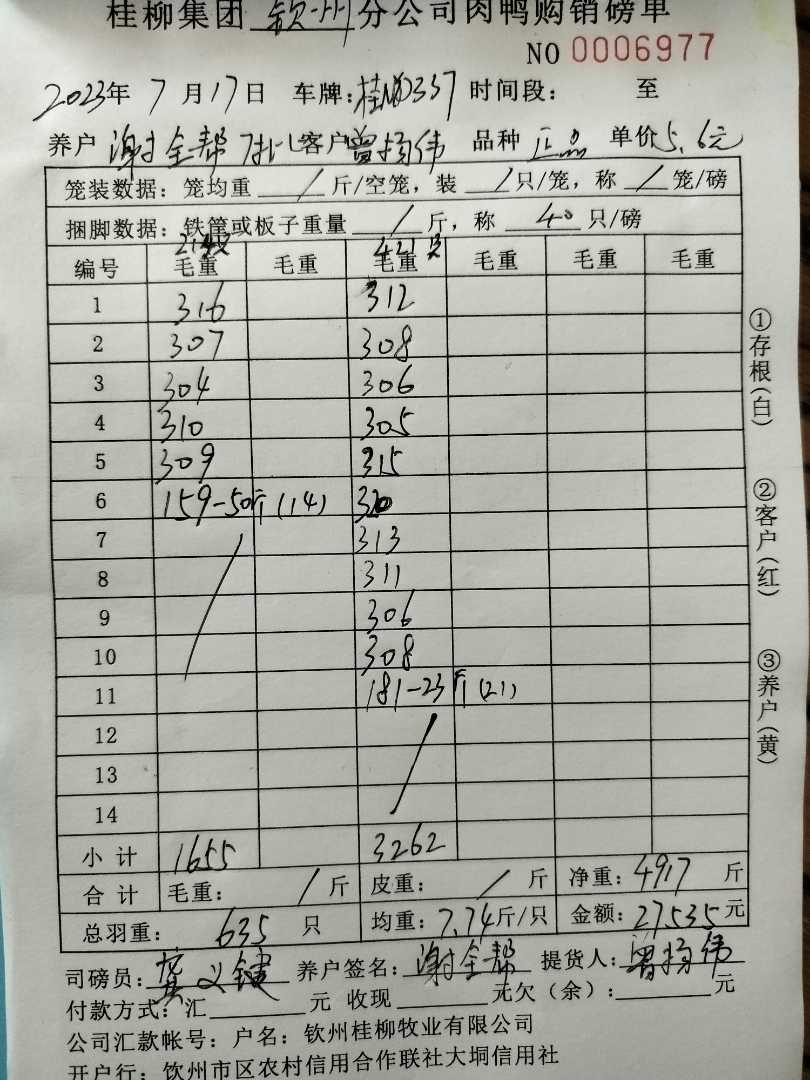 桂柳集团 钦州 分公司肉鸭购销磅单
NO 0006977
2023年 7 月 17日 车牌: 337 时间段: 至
养户 谢全帮 客户 曾扬伟 品种 正品 单价 5.6元
笼装数据: 笼均重 / 斤/空笼, 装 / 只/笼, 称 / 笼/磅
捆脚数据: 铁筐或板子重量 / 斤, 称 40 只/磅
214只 421只
编号 毛重 毛重 毛重 毛重 毛重 毛重
1 316 312
2 307 308
3 304 306
4 310 305
5 309 315
6 159-50斤(14)
7 313
8 311
9 306
10 308
11 181-23斤(21)
12
13
14
小计 1655 3262
合计 毛重: / 斤 皮重: / 斤 净重: 4917 斤
总羽重: 635 只 均重: 7.74斤/只 金额: 27535元
司磅员: 义键 养户签名: 谢全帮 提货人: 曾扬伟
付款方式: 汇 元 收现 元欠(余): 元
公司汇款帐号: 户名: 钦州桂柳牧业有限公司
开户行: 钦州市区农村信用合作联社大垌信用社
①存根(白)
②客户(红)
③养户(黄)